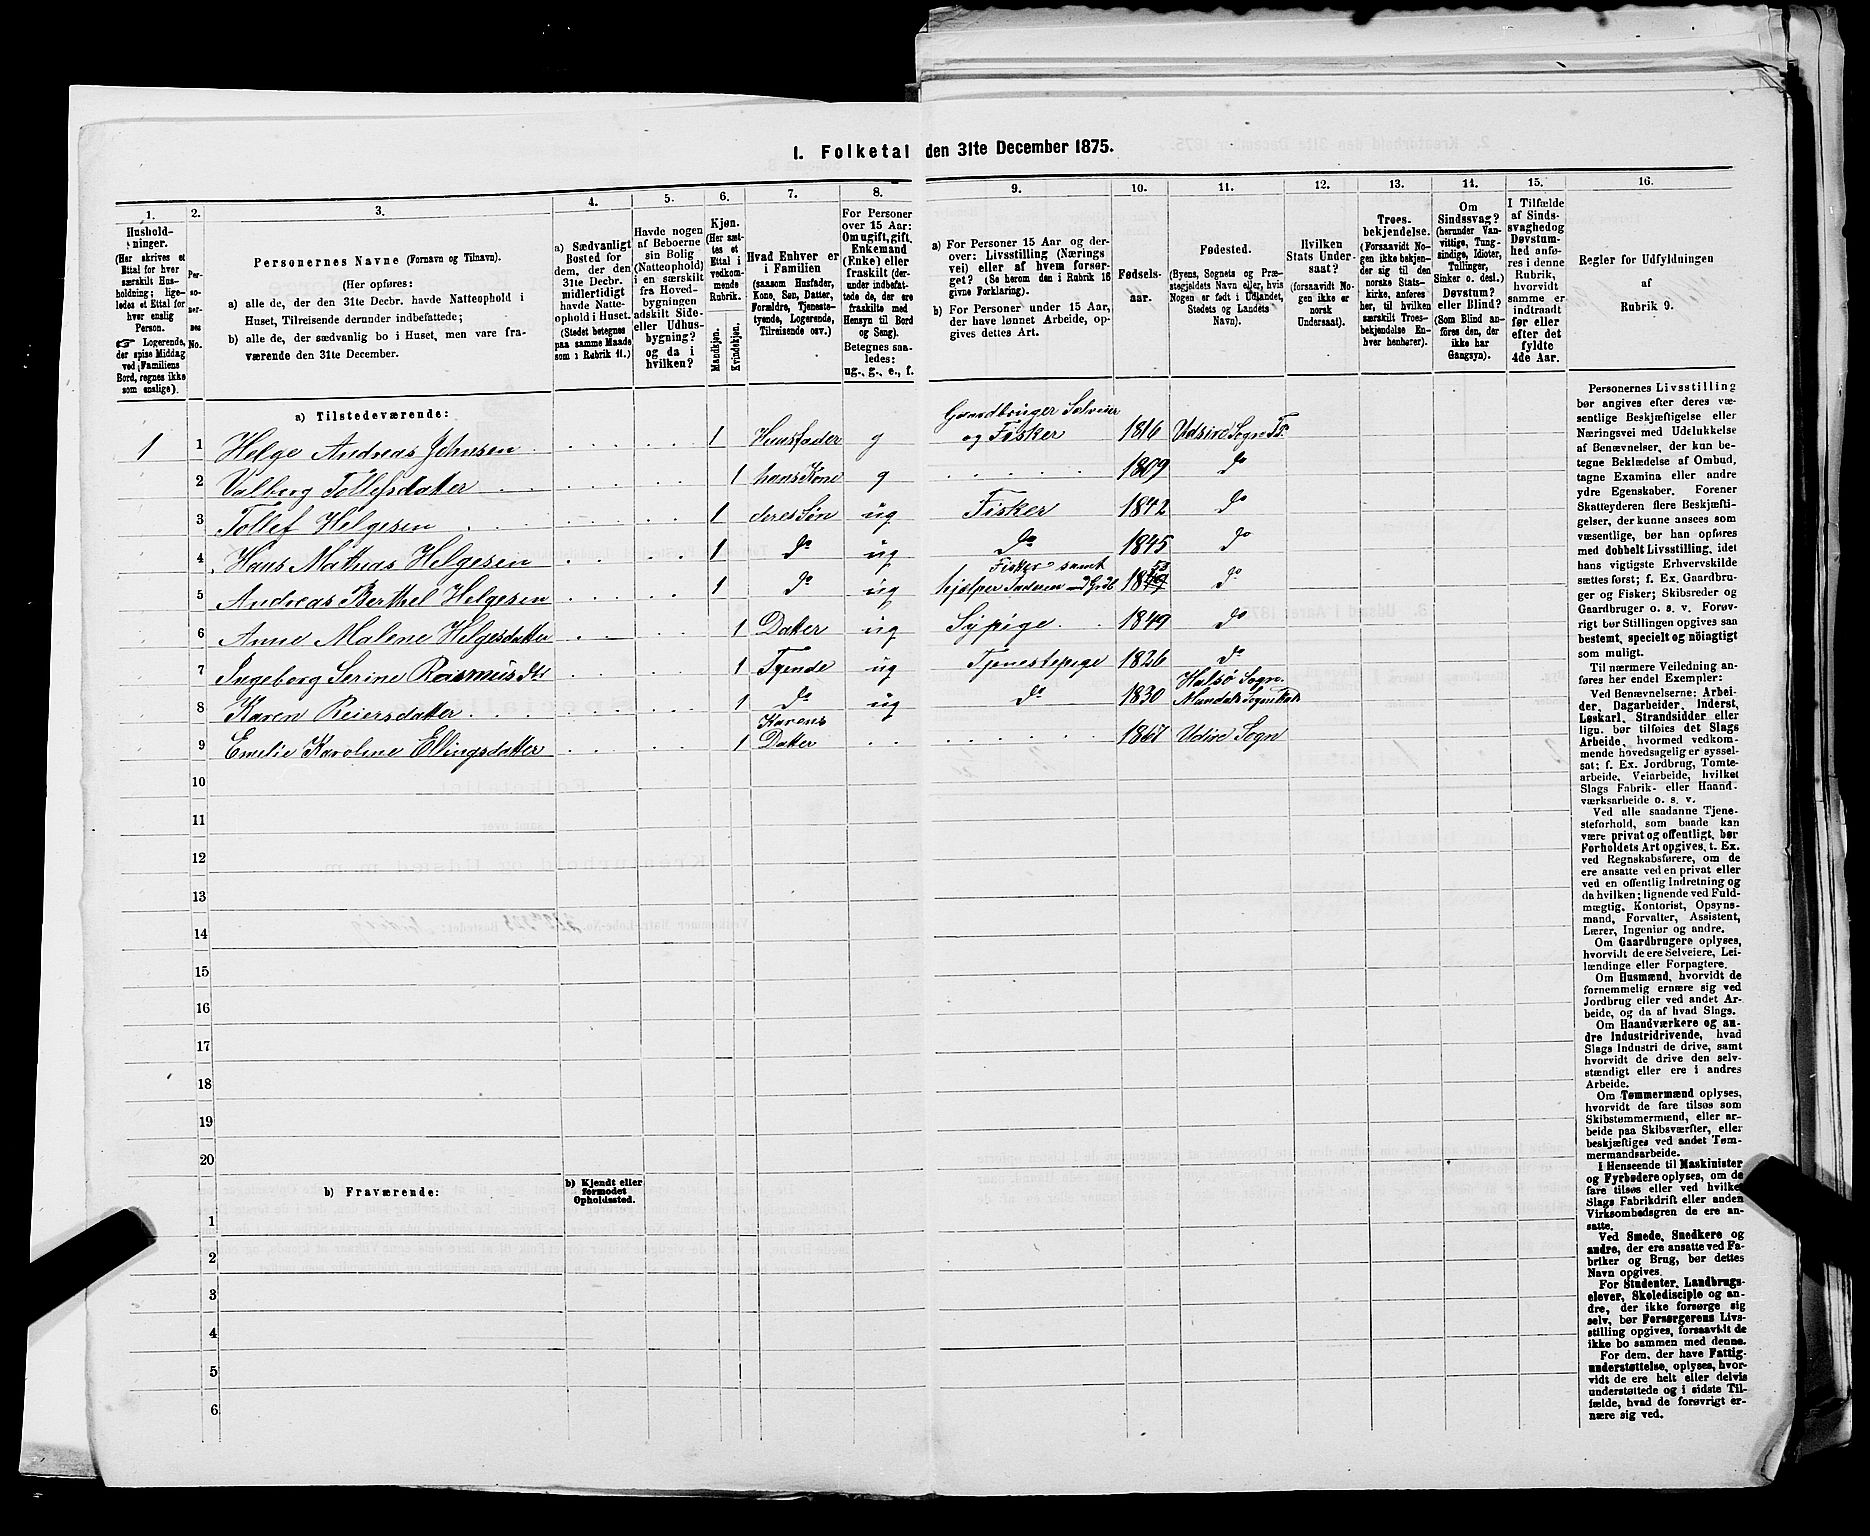 1. Folketal den 31te December 1875.
1. 2. 3. 4. 5. 6. 7. 8. 9. 10. 11. 12. 13. 14. 15. 16.
Hushold-
ninger.
(Her skrives et
Ettal for hver
særskilt Hus-
holdning; lige-
ledes et Ettal for
hver enslig
Person.
☞ Logerende,
der spise Middag
ved Familiens
Bord, regnes ikke
som enslige).
Per-
so-
ner-
nes
No.
Personernes Navne (Fornavn og Tilnavn).
(Her opføres:
a) alle de, der den 31te Decbr. havde Natteophold i
Huset, Tilreisende derunder indbefattede;
b) alle de, der sædvanlig bo i Huset, men vare fra-
værende den 31te December.
a) Sædvanligt
Bosted for
dem, der den
31te Decbr.
midlertidigt
havde Natte-
ophold i Huset.
(Stedet betegnes
paa samme Maade
som i Rubrik 11.)
Havde nogen
af Beboerne
sin Bolig
(Natteophold)
i en særskilt
fra Hoved-
bygningen
adskilt Side-
eller Udhus-
bygning?
og da i
hvilken?
Kjøn.
(Her sæt-
tes et
Ettal i
vedkom-
mende
Rubrik.)
Mandkjøn.
Kvindekjøn.
Hvad Enhver er
i Familien
(saasom Husfader,
Kone, Søn, Datter,
Forældre, Tjeneste-
tyende, Logerende,
Tilreisende osv.)
For Personer
over 15 Aar:
Om ugift, gift,
Enkemand
(Enke) eller
fraskilt (der-
under indbefat-
tede de, der ere
fraskilte med
Hensyn til Bord
og Seng).
Betegnes saa-
ledes:
ug., g., e., f.
a) For Personer 15 Aar og der-
over: Livsstilling (Nærings-
vei) eller af hvem forsør-
get? (Se herom den i Rubrik 16
givne Forklaring).
b) For Personer under 15 Aar,
der have lønnet Arbeide, op-
gives dettes Art.
Fødsels-
aar.
Fødested.
(Byens, Sognets og Præ-
stegjeldets Navn eller, hvis
Nogen er født i Udlandet,
Stedets og Landets
Navn).
Hvilken
Stats Under-
saat?
(forsaavidt No-
gen ikke er
norsk
Undersaat).
Troes-
bekjendelse.
(Forsaavidt No-
gen ikke bekjen-
der sig til den
norske Stats-
kirke, anføres
her, til hvilken
særskilt Troes-
bekjendelse En-
hver henhører).
Om
Sindssvag?
(herunder Van-
vittige, Tung-
sindige, Idioter,
Tullinger,
Sinker o. desl.)
Døvstum?
eller Blind?
(Som Blind an-
føres den, der
ikke har
Gangsyn).
I Tilfælde
af Sinds-
svaghed og
Døvstum-
hed anfø-
res i denne
Rubrik,
hvorvidt
samme er
indtraadt
før eller
efter det
fyldte
4de Aar.
Regler for Udfyldningen
af
Rubrik 9.
a) Tilstedeværende:
Gaardbruger Selveier
1 1 Helge Andreas Johnsen 1 Huusfader g og Fisker 1816 Udsire Sogn Ts.
2 Valborg Tollefsdatter 1 hans Kone g 1809 do
3 Tollef Helgesen 1 deres Søn ug Fisker 1842 do
4 Hans Mathias Helgesen 1 do ug do 1845 do
Fisker samt
5 Andreas Berthel Helgesen 1 do ug hjælper Faderen med Grdb. 18 53 do
6 Anne Malene Helgesdatter 1 Datter ug Sypige 1849 do
7 Ingeborg Serine Rasmusdtr 1 Tyende ug Tjenestepige 1826 do
Halsø Sogn.
8 Karen Reiersdatter 1 do ug do 1830 Mandals
Karens
9 Emilie Karoline Ellingsdatter 1 Datter 1867 Udsire Sogn
10
11
12
13
14
15
16
17
18
19
20
b) Fraværende:
b) Kjendt eller
formodet
Opholdssted.
1
2
3
4
5
6
Personernes Livsstilling
bør angives efter deres væ-
sentlige Beskjæftigelse eller
Næringsvei med Udelukkelse
af Benævnelser, der kun be-
tegne Beklædelse af Ombud,
tagne Examina eller andre
ydre Egenskaber. Forener
Skatteyderen flere Beskjæfti-
gelser, der kunne ansees som
væsentlige, bør han opføres
med dobbelt Livsstilling, idet
hans vigtigste Erhvervskilde
sættes først; f. Ex. Gaardbru-
ger og Fisker; Skibsreder og
Gaardbruger o. s. v. Forøv-
rigt bør Stillingen opgives saa
bestemt, specielt og nöiagtigt
som muligt.
Til nærmere Veiledning an-
føres her endel Exempler:
Ved Benævnelserne: Arbei-
der, Dagarbeider, Inderst,
Løskarl, Strandsidder eller
lign. bør tilføies det Slags
Arbeide, hvormed vedkom-
mende hovedsagelig er syssel-
sat; f. Ex. Jordbrug, Tomte-
arbeide, Veiarbeide, hvilket
Slags Fabrik- eller Haand-
værksarbeide o. s. v.
Ved alle saadanne Tjene-
steforhold, som baade kan
være privat og offentligt, bør
Forholdets Art opgives, t. Ex.
ved Regnskabsførere, om de
ere ansatte ved en privat eller
ved en offentlig Indretning og
da hvilken; lignende ved Fuld-
mægtig, Kontorist, Opsyns-
mand, Forvalter, Assistent,
Lærer, Ingeniør og andre.
Om Gaardbrugere oplyses,
hvorvidt de ere Selveiere, Lei-
lændinge eller Forpagtere.
Om Husmænd, hvorvidt de
fornemmelig ernære sig ved
Jordbrug eller ved andet Ar-
beide, og da af hvad Slags.
Om Haandværkere og an-
dre Industridrivende, hvad
Slags Industri de drive, samt
hvorvidt de drive den selv-
stændigt eller ere i andres
Arbeide.
Om Tømmermænd oplyses,
hvorvidt de fare tilsøs som
Skibstømmermænd, eller ar-
beide paa Skibsværfter, eller
beskjæftiges ved andet Tøm-
mermandsarbeide.
I Henseende til Maskinister
og Fyrbødere oplyses, om de
fare tilsøs eller ved hvilket
Slags Fabrikdrift eller anden
Virksomhedsgren de ere an-
satte.
Ved Smede, Snedkere og
andre, der ere ansatte ved Fa-
briker og Brug, bør dettes
Navn opgives.
For Studenter, Landbrugs-
elever, Skoledisciple og an-
dre, der ikke forsørge sig
selv, bør Forsørgerens Livs-
stilling opgives, forsaavidt de
ikke bo sammen med denne.
For dem, der have Fattig-
understøttelse, oplyses, hvor-
vidt de ere helt eller delvis
understøttede og i sidste Til-
fælde, hvad de forøvrigt er-
nære sig ved.